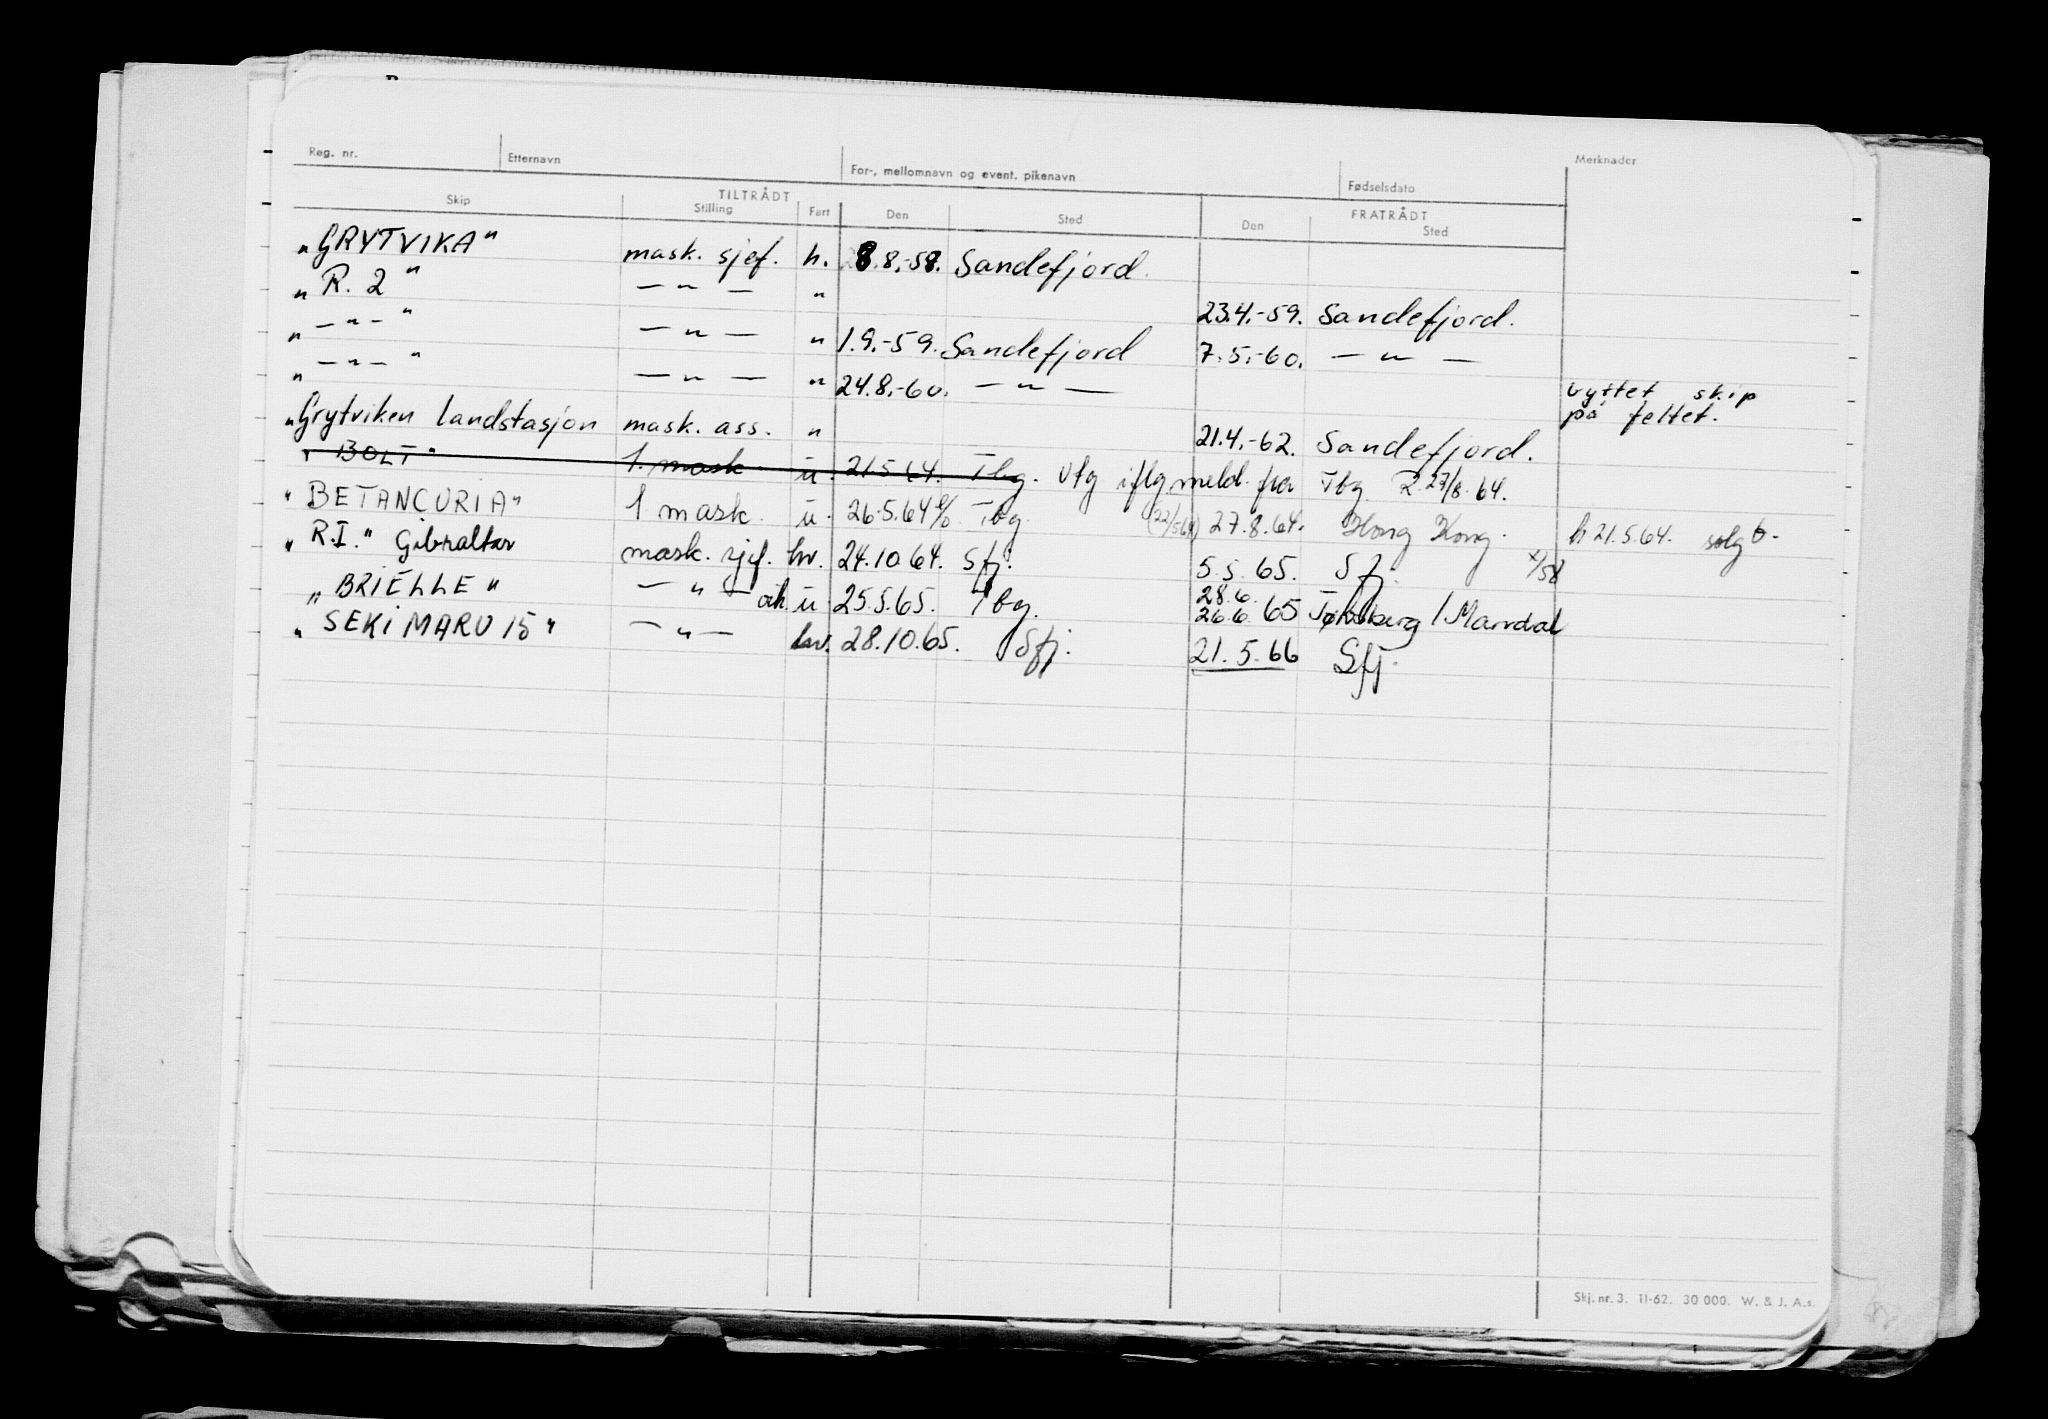 Reg. nr. Etternavn For-, mellomnavn og event. pikenavn Fødselsdato Merknader
TILTRÅDT FRATRÅDT
Skip Stilling Fart Den Sted Den Sted
"GRYTVIKA" mask. sjef. h. 8.8.-58. Sandefjord.
" R. 2 " — " — " 23.4.-59. Sandefjord.
" — " — " — " — " 1.9.-59. Sandefjord 7.5.-60. — " —
" — " — " — " — " 24.8.-60. — " — byttet skip
på feltet.
"Grytviken Landstasjon mask. ass. " 21.4.-62. Sandefjord.
" BOLT " 1. mask. u. 21.5.64. Tbg. Utg iflg meld. fra Tbg R. 27/8.64.
" BETANCURIA " 1 mask. u. 26.5.64 Tbg. 27.8.64. Hong Kong. h 21.5.64. solgt.
" R.I. " Gibraltar mask. sjef. hv. 24.10.64. Sfj. 5.5.65. Sfj.
28.6.
" BRIELLE " — " — u 25.5.65. Tbg. 26.6.65 Tønsberg / Mandal
" SEKI MARU 15 " — " — hv. 28.10.65. Sfj. 21.5.66 Sfj.
Skj. nr. 3. 11-62. 30 000. W. & J. A.s.